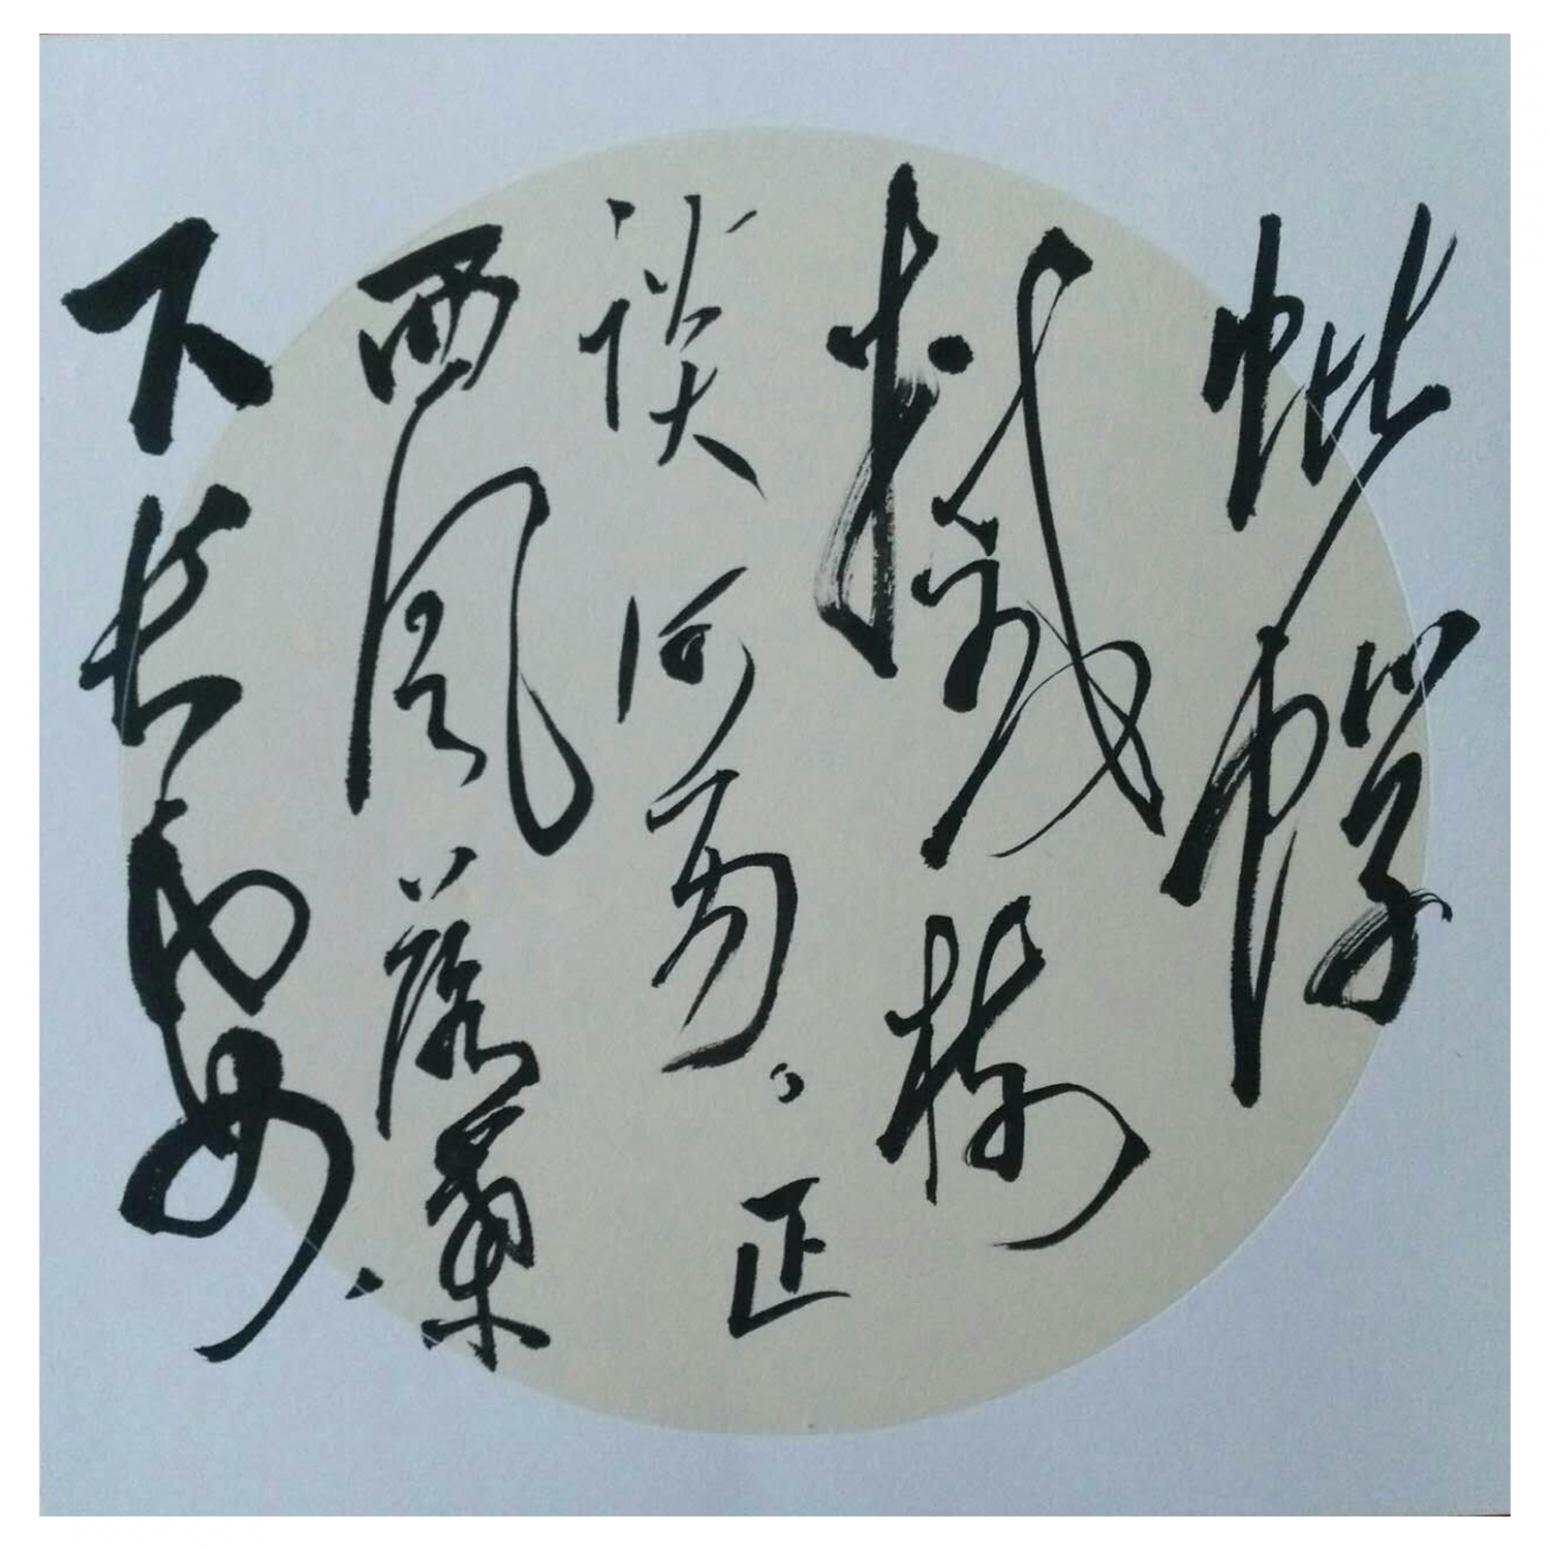 蚍蜉
撼树
谈何易。正
西风落葉
下长安，